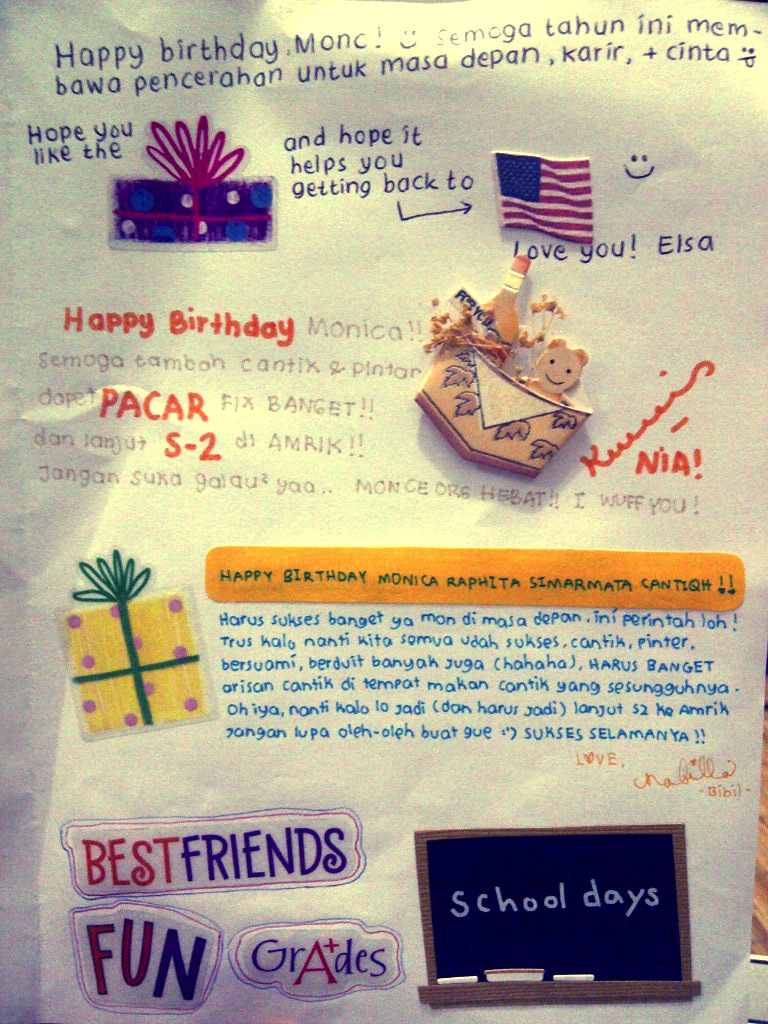 Happy birthday, Monc! Semoga tahun ini mem-
bawa pencerahan untuk masa depan, karir, + cinta
Hope you
like the
and hope it
helps you
getting back to
Love you! Elsa
Happy Birthday Monica!!
Semoga tambah cantik & pintar
dapet PACAR FIX BANGET!!
dan lanjut S-2 di AMRIK!!
Jangan suka galau² yaa.. MONCE ORG HEBAT!! I WUFF YOU!
NIA!
HAPPY BIRTHDAY MONICA RAPHITA SIMARMATA CANTIQH!!
Harus sukses banget ya mon di masa depan, ini perintah loh!
Trus kalo nanti kita semua udah sukses, cantik, pinter,
bersuami, berduit banyak juga (hahaha), HARUS BANGET
arisan cantik di tempat makan cantik yang sesungguhnya.
Oh iya, nanti kalo lo jadi (dan harus jadi) lanjut S2 ke Amrik
jangan lupa oleh-oleh buat gue :') SUKSES SELAMANYA!!
LOVE,
nabilla
-Bibil-
BESTFRIENDS
FUN
GrA+des
school days